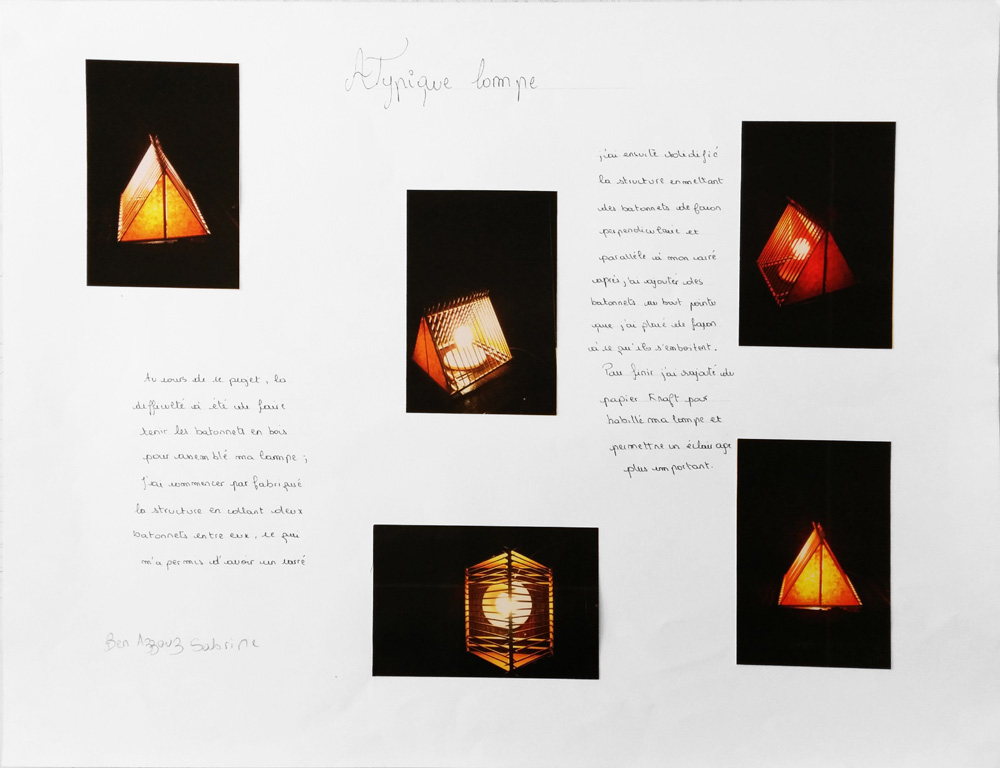 ATypique lampe
Au cours de ce projet, la
difficulté à été de faire
tenir les batonnets en bois
pour assemblé ma lampe ;
J'ai commencer par fabriqué
la structure en collant deux
batonnets entre eux, ce qui
m'a permis d'avoir un carré
j'ai ensuite solidifié
la structure en mettant
des batonnets de façon
perpendiculaire et
parallèle à mon carré
après, j'ai ajouter des
batonnets au bout pointu
que j'ai placé de façon
à ce qu'ils s'emboitent.
Pour finir j'ai rajouté du
papier Kraft pour
habillé ma lampe et
permettre un éclairage
plus important.
Ben Azzouz Sabrine